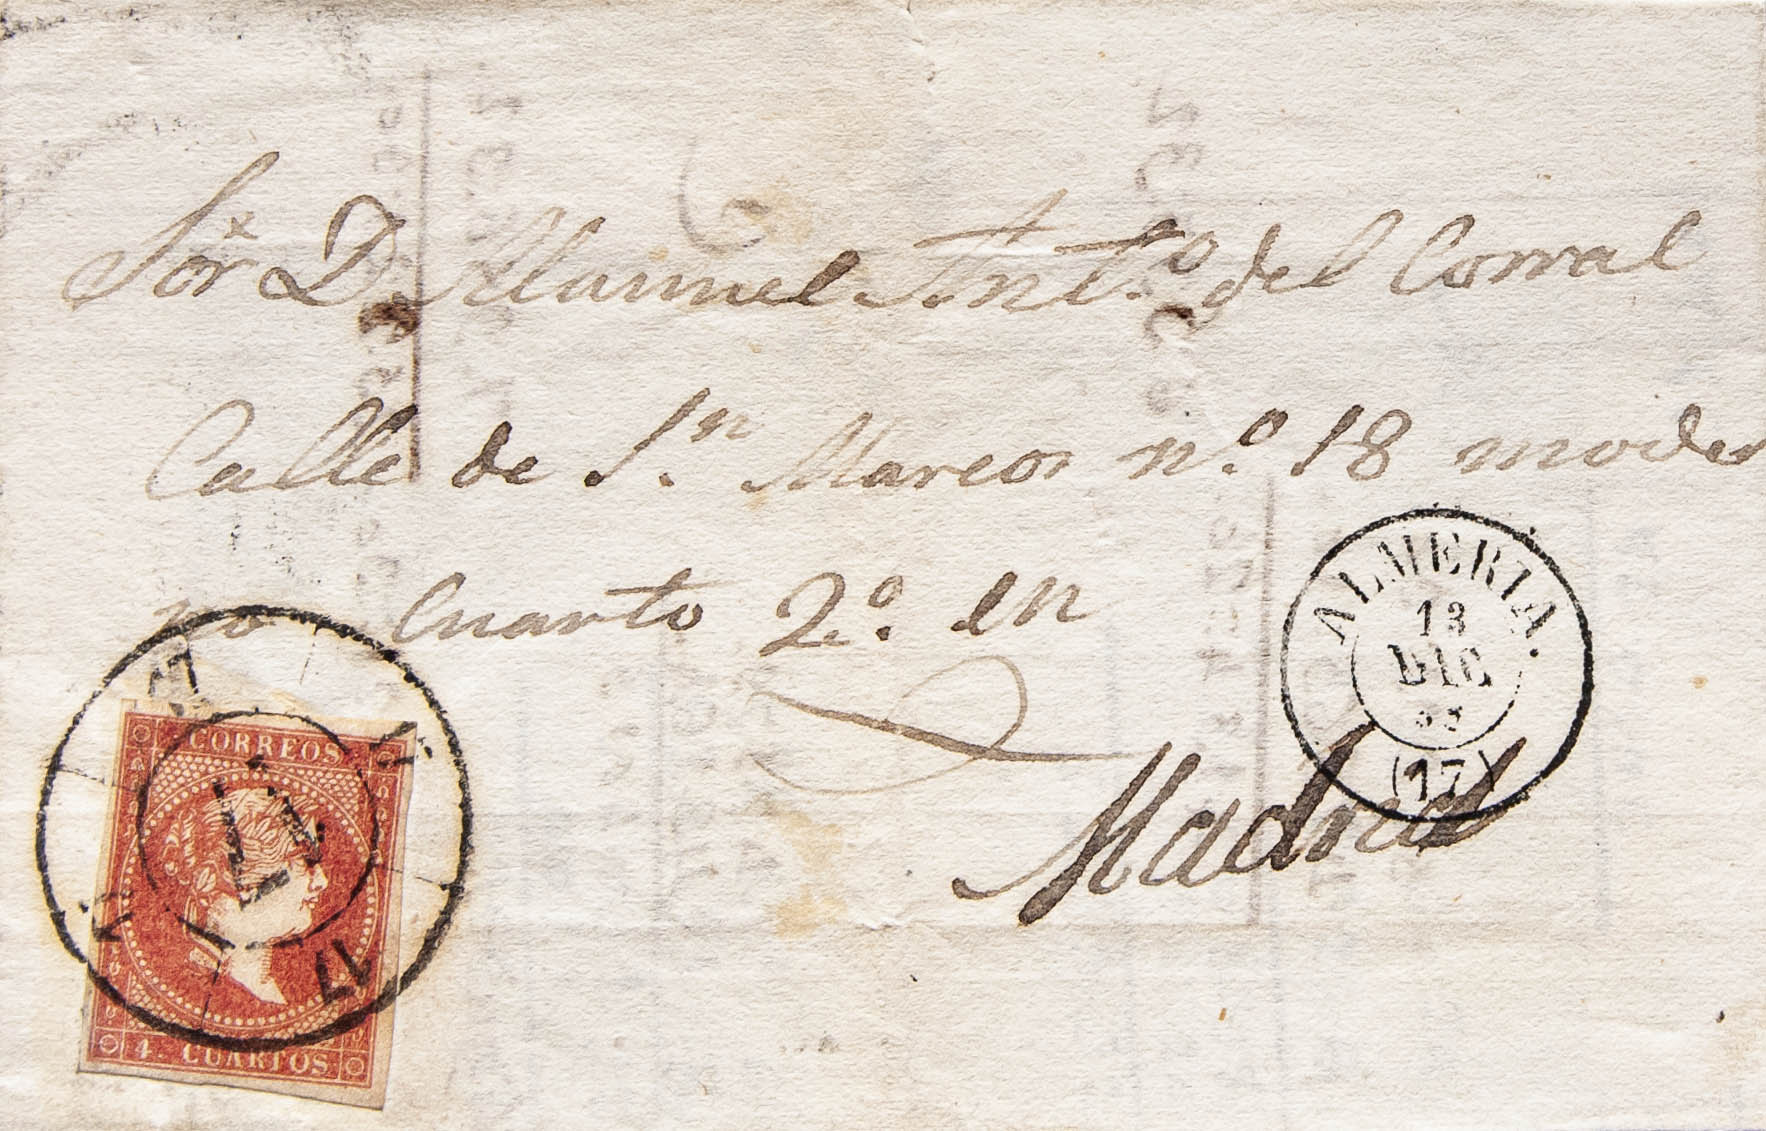 Sor D. Manuel Anto. del Corral
Calle de Sn. Marcos no. 18 moder
no Cuarto 2o. en
Madrid
ALMERIA.
13
DIC
(17)
CORREOS
4 CUARTOS